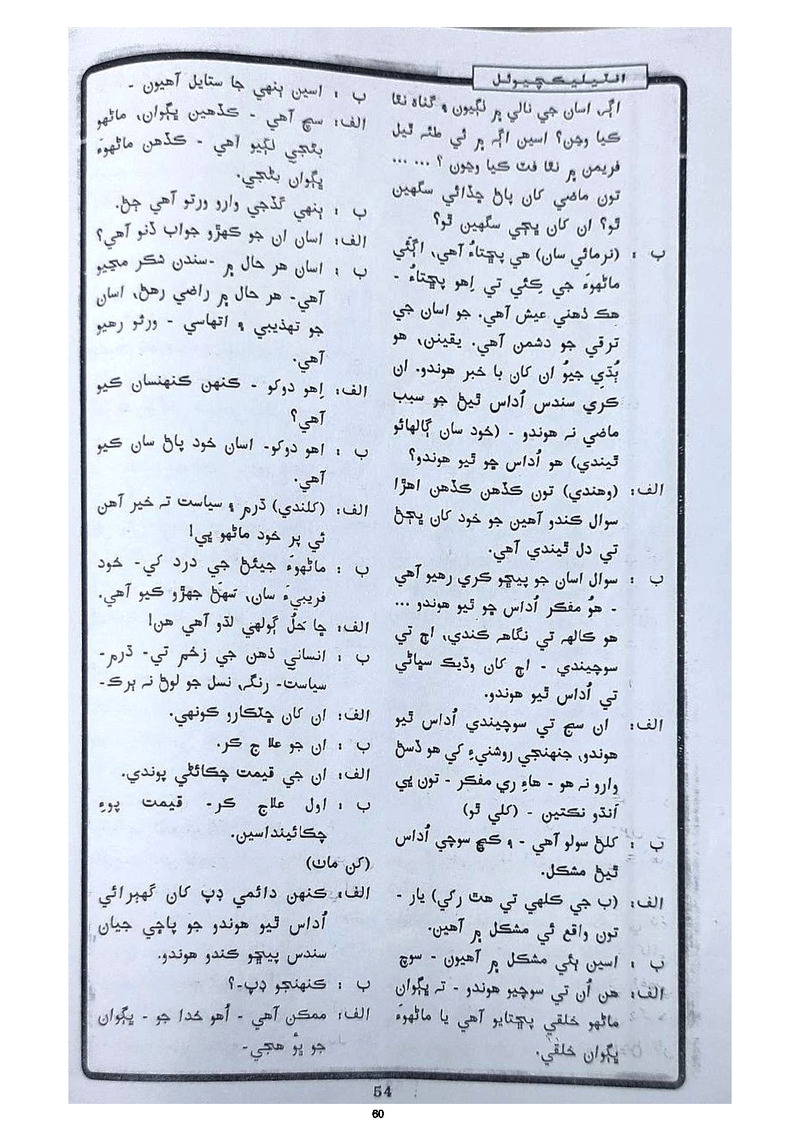 انٽيليڪچيوئل
اڳ، اسان جي نالي ۾ لڳيون ۽ گناه نٿا
ڪيا وڃن؟ اسين اڳ ۾ ئي طئه ٿيل
فريمن ۾ نٿا فٽ ڪيا وڃون ؟ ... ...
تون ماضي کان پاڻ ڇڏائي سگهين
ٿو؟ ان کان ڀڄي سگهين ٿو؟
ب : (نرمائي سان) هي پڇتاءُ آهي، اڳئي
ماڻهوءَ جي ڪِئي تي اِهو پڇتاءُ -
هڪ ذهني عيش آهي. جو اسان جي
ترقي جو دشمن آهي. يقينن، هو
ٻُڌي جيوُ ان کان با خبر هوندو. ان
ڪري سندس اُداس ٿيڻ جو سبب
ماضي نہ هوندو - (خود سان ڳالهائو
ٿيندي) هو اُداس ڇو ٿيو هوندو؟
الف: (وهندي) تون ڪڏهن ڪڏهن اهڙا
سوال ڪندو آهين جو خود کان ڀڄڻ
تي دل ٿيندي آهي.
ب : سوال اسان جو پيڇو ڪري رهيو آهي
- هوُ مفڪر اُداس ڇو ٿيو هوندو ...
هو ڪالهہ تي نگاهہ ڪندي، اڄ تي
سوچيندي - اڄ کان وڌيڪ سڀاڻي
تي اُداس ٿيو هوندو.
الف: ان سڄ تي سوچيندي اُداس ٿيو
هوندو، جنهنجي روشنيءَ کي هو ڏسڻ
وارو نہ هو - هاءِ ري مفڪر - تون ڀي
اَنڌو نڪتين - (کلي ٿو)
ب : کلڻ سولو آهي - ۽ ڪجهہ سوچي اُداس
ٿيڻ مشڪل.
الف: (ب جي ڪلهي تي هٿ رکي) يار -
تون واقع ئي مشڪل ۾ آهين.
ب : اسين ٻئي مشڪل ۾ آهيون - سوچ
الف: هن اُن تي سوچيو هوندو - تہ ڀڳوان
ماڻهو خلقي پڇتايو آهي يا ماڻهوءَ
ڀڳوان خلقي.
ب : اسين ٻنهي جا ستايل آهيون -
الف: سچ آهي - ڪڏهين ڀڳوان، ماڻهو
بڻجي لڳيو آهي - ڪڏهن ماڻهوءَ
ڀڳوان بڻجي.
ب : ٻنهي گڏجي وارو ورتو آهي ڄڻ.
الف: اسان ان جو ڪهڙو جواب ڏنو آهي؟
ب : اسان هر حال ۾ -سندن شڪر مڃيو
آهي- هر حال ۾ راضي رهڻ، اسان
جو تهذيبي ۽ اتهاسي - ورثو رهيو
آهي.
الف: اِهو دوکو - ڪنهن ڪنهنسان ڪيو
آهي؟
ب : اهو دوکو- اسان خود پاڻ سان ڪيو
آهي.
الف: (کلندي) ڌرم ۽ سياست تہ خير آهن
ئي پر خود ماڻهو ڀي!
ب : ماڻهوءَ جيئڻ جي درد کي- خود
فريبيءَ سان، سَهَڻ جهڙو ڪيو آهي.
الف: ڇا حَلُ ڳولهي لڌو آهي هن!
ب : انساني ذهن جي زخم تي- ڌرم-
سياست- رنگ، نسل جو لوڻ نہ ٻرڪ-
الف: ان کان ڇٽڪارو ڪونهي.
ب : ان جو علاج ڪر.
الف: ان جي قيمت چڪائڻي پوندي.
ب : اول علاج ڪر- قيمت پوءِ
چڪائينداسين.
(کن مات)
الف: ڪنهن دائمي ڊپ کان گهٻرائي
اُداس ٿيو هوندو جو پاڇي جيان
سندس پيڇو ڪندو هوندو.
ب : ڪنهنجو ڊپ-؟
الف: ممڪن آهي - اُهو خدا جو - ڀڳوان
جو ڀوُ هجي-
54
60